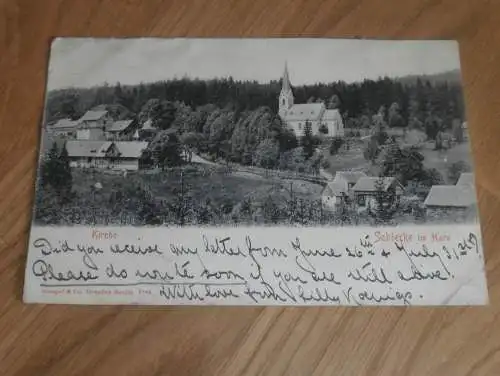 Kirche Schierke im Harz
Did you receive my letter from June 26th & July 3/
Please do write soon if you are still alive!
With love from Lilly Koenigs.